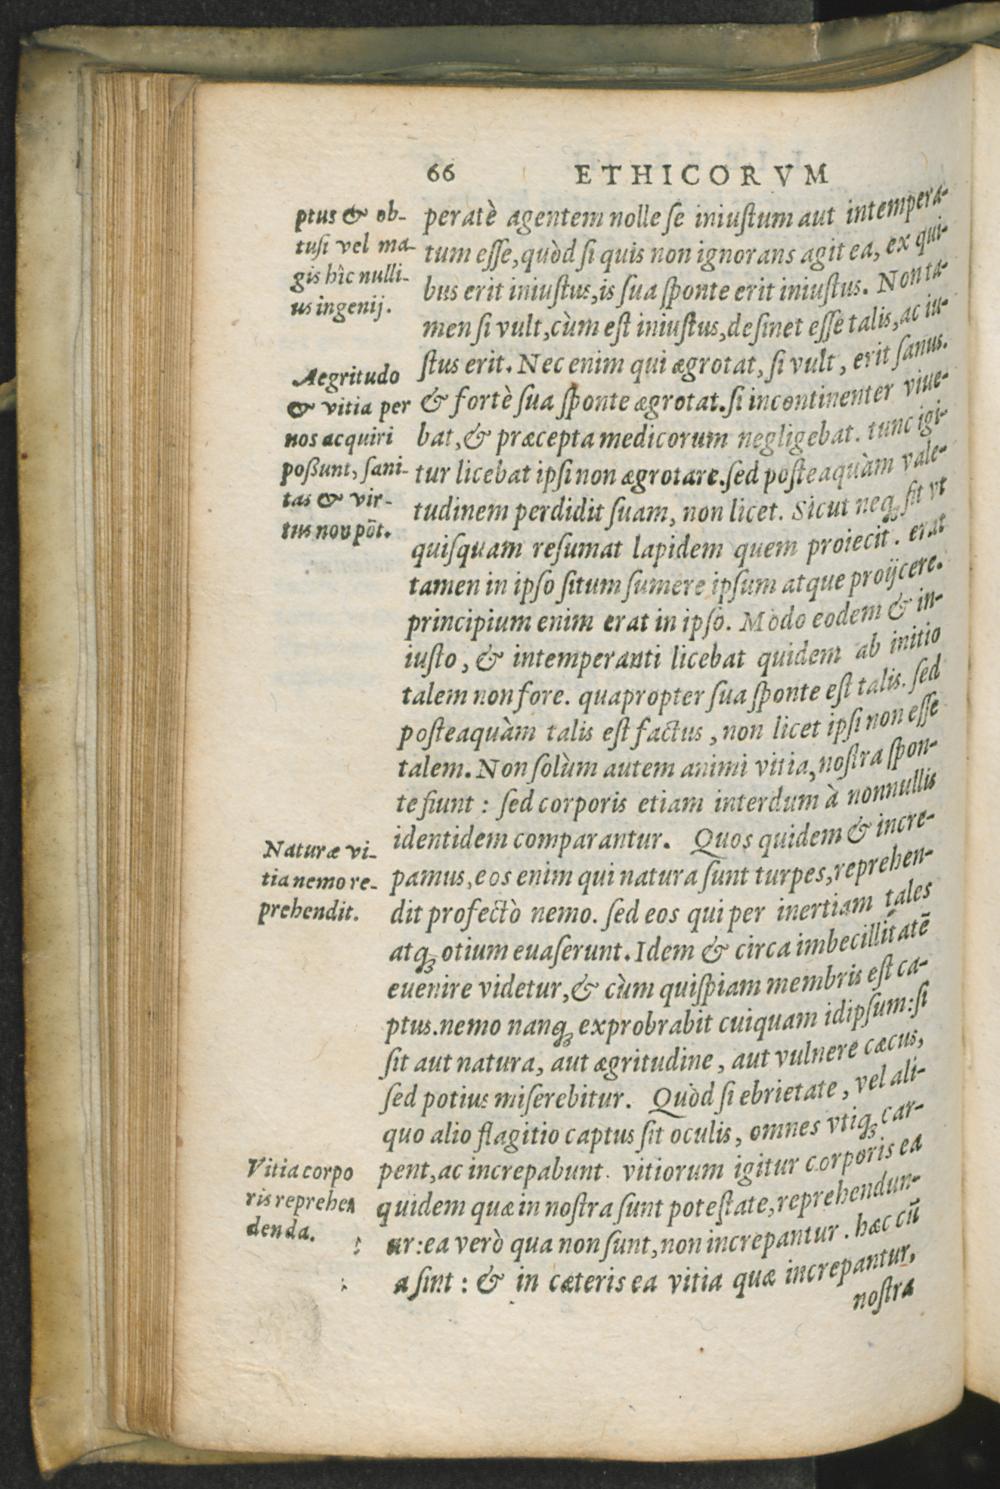 66 ETHICORVM
ptus & ob-
tusi vel ma-
gis hîc nulli-
us ingenij.
Aegritudo
& vitia per
nos acquiri
possunt, sani-
tas & vir-
tus non põt.
Naturæ vi-
tia nemo re-
prehendit.
Vitia corpo
ris reprehen
denda.
peratè agentem nolle se iniustum aut intempera-
tum esse, quòd si quis non ignorans agit ea, ex qui-
bus erit iniustus, is sua sponte erit iniustus. Non ta-
men si vult, cùm est iniustus, desinet esse talis, ac iu-
stus erit. Nec enim qui ægrotat, si vult, erit sanus.
& fortè sua sponte ægrotat. si incontinenter viue-
bat, & præcepta medicorum negligebat. tunc igi-
tur licebat ipsi non ægrotare. sed posteaquàm vale-
tudinem perdidit suam, non licet. Sicut neq; sit vt
quisquam resumat lapidem quem proiecit. erat
tamen in ipso situm sumere ipsum atque proijcere.
principium enim erat in ipso. Modo eodem & in-
iusto, & intemperanti licebat quidem ab initio
talem non fore. quapropter sua sponte est talis. sed
posteaquàm talis est factus, non licet ipsi non esse
talem. Non solùm autem animi vitia, nostra spon-
te fiunt: sed corporis etiam interdum à nonnullis
identidem comparantur. Quos quidem & incre-
pamus, eos enim qui natura sunt turpes, reprehen-
dit profectò nemo. sed eos qui per inertiam tales
atq; otium euaserunt. Idem & circa imbecillitatẽ
euenire videtur, & cùm quispiam membris est ca-
ptus. nemo nanq; exprobrabit cuiquam idipsum: si
sit aut natura, aut ægritudine, aut vulnere cæcus,
sed potius miserebitur. Quòd si ebrietate, vel ali-
quo alio flagitio captus sit oculis, omnes vtiq; car-
pent, ac increpabunt. vitiorum igitur corporis ea
quidem quæ in nostra sunt potestate, reprehendun-
ur: ea verò qua non sunt, non increpantur. hæc cũ
a sint: & in cæteris ea vitia quæ increpantur,
nostra